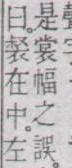 是裳幅之誤。
曰。裻在中。左